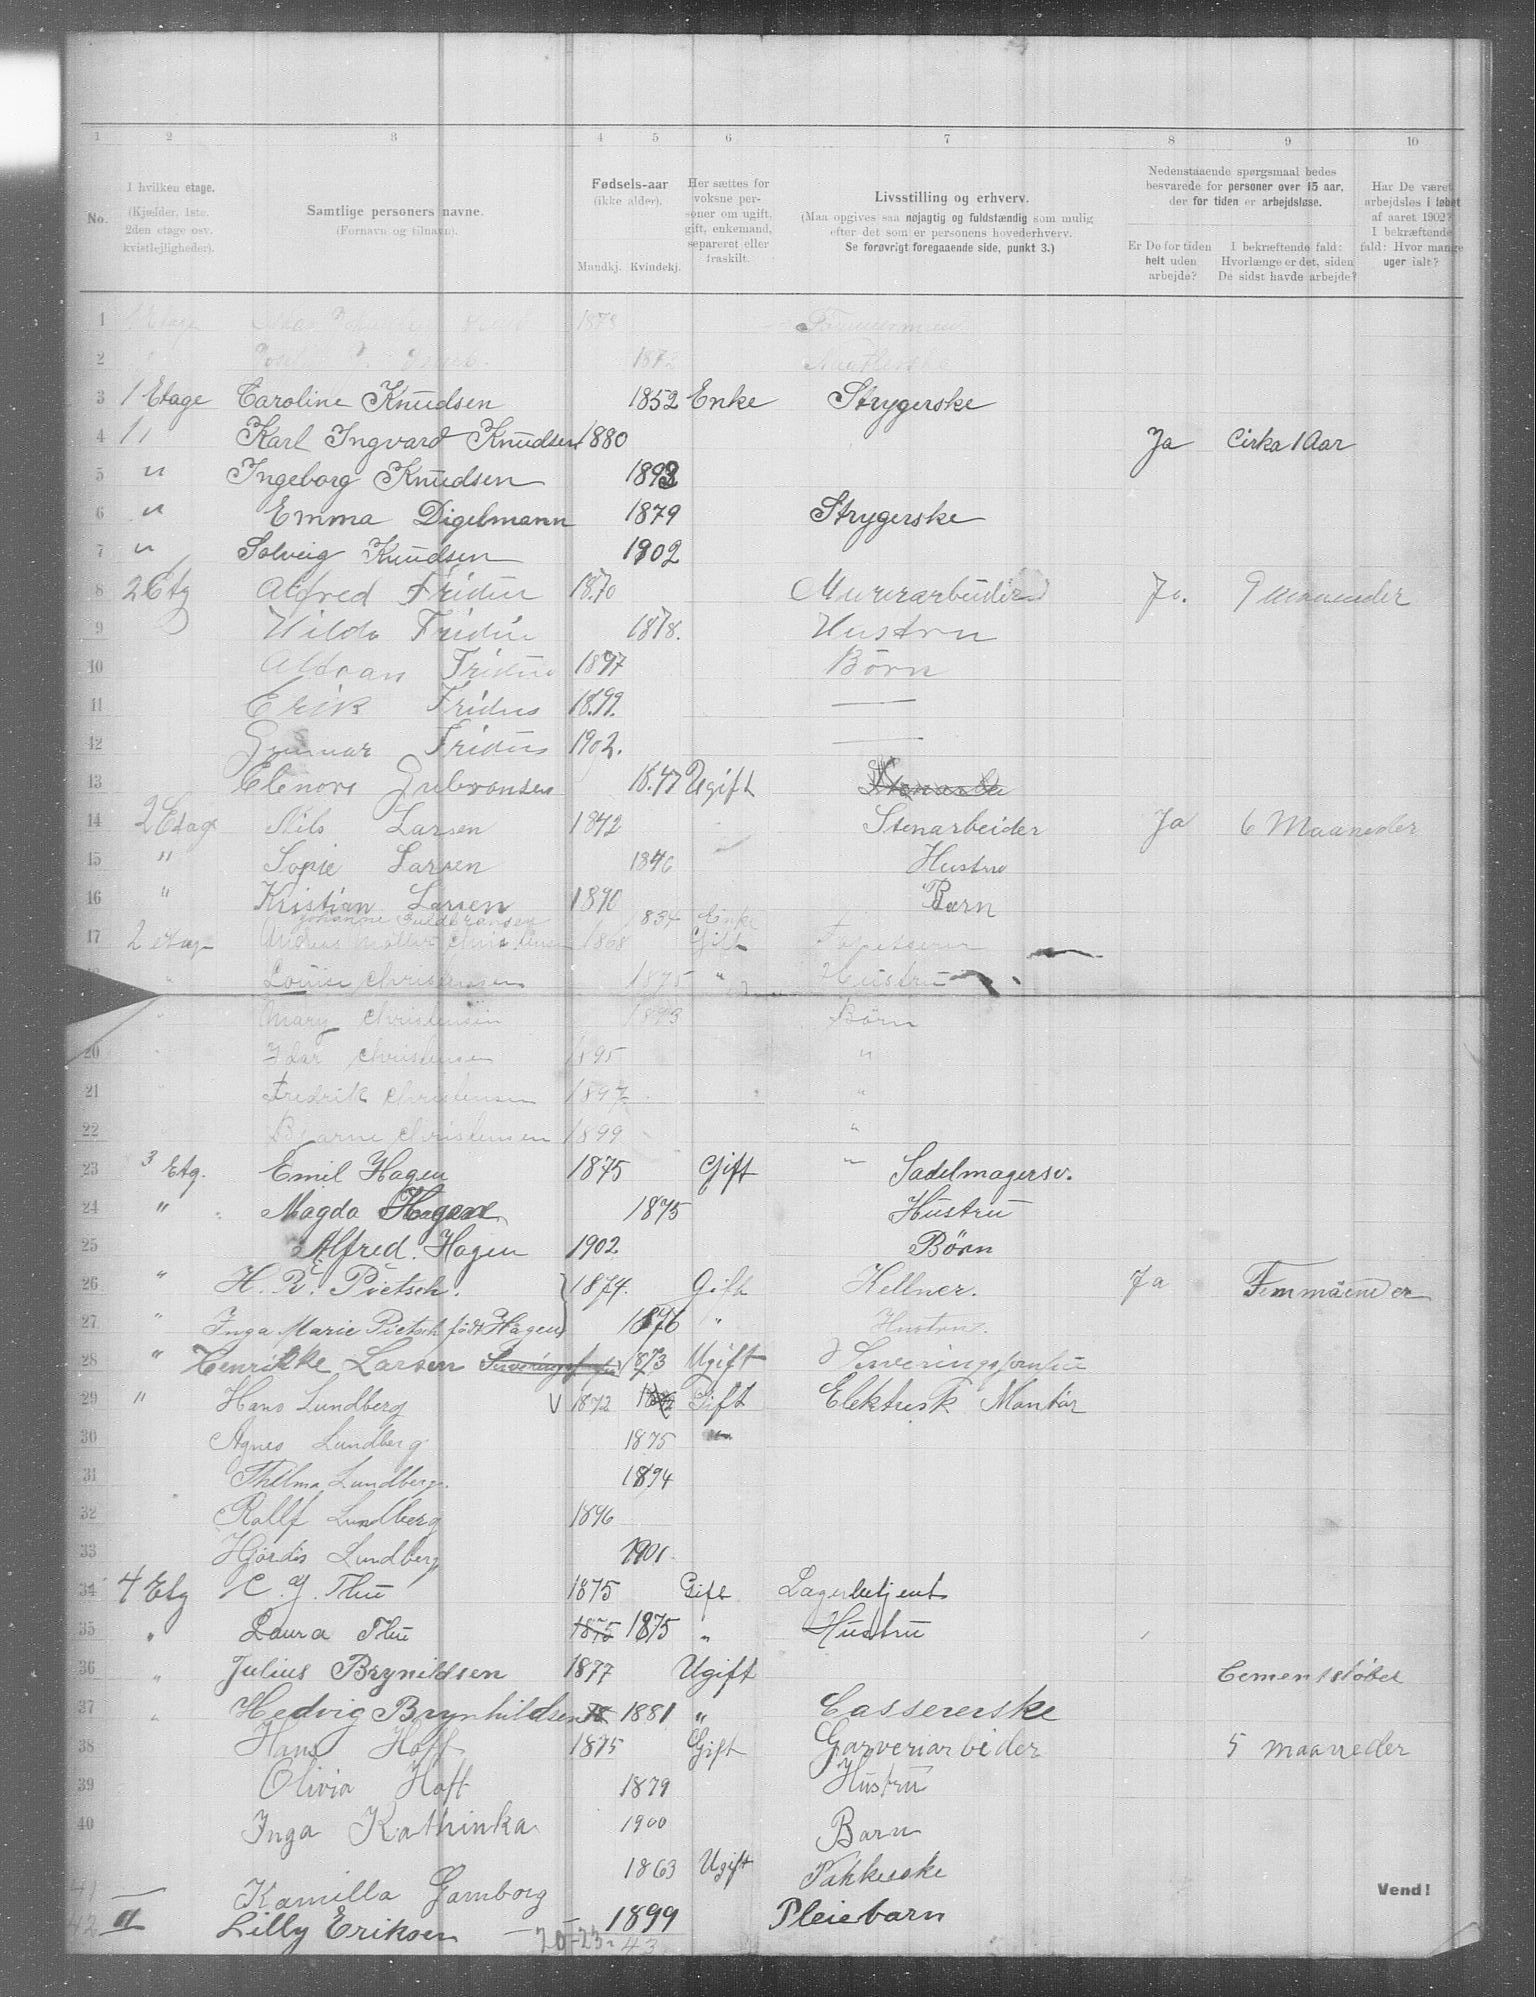 1 2 3 4 5 6 7 8 9 10
No.
I hvilken etage. (Kjælder, 1ste, 2den etage osv. kvistlejligheder).
Samtlige personers navne. (Fornavn og tilnavn).
Fødsels-aar (ikke alder). Mandkj. Kvindekj.
Her sættes for voksne personer om ugift, gift, enkemand, separeret eller fraskilt.
Livsstilling og erhverv. (Maa opgives saa nøjagtig og fuldstændig som mulig efter det som er personens hovederhverv. Se forøvrigt foregaaende side, punkt 3.)
Nedenstaaende spørgsmaal bedes besvarede for personer over 15 aar, der for tiden er arbejdsløse.
Er De for tiden helt uden arbejde?
I bekræftende fald: Hvorlænge er det, siden De sidst havde arbejde?
Har De været arbejdsløs i løbet af aaret 1902? I bekræftende fald: Hvor mange uger ialt?
1 Etage 1878
2 1872
3 1 Etage Caroline Knudsen 1852 Enke Strygerske
4 1 " Karl Ingvard Knudsen 1880 Ja Cirka 1 Aar
5 " Ingeborg Knudsen 1893
6 " Emma Digelmann 1879 Strygerske
7 " Solveig Knudsen 1902
8 2 Etg Alfred Fridün 1870 Murerarbeider Ja. 9 maaneder
9 Hilda Fridün 1878. Hustru
10 Fridün 1897 Børn
11 Erik Fridün 1899. —
12 Gunnar Fridün 1902. —
13 Elenora Gulbransen 1847 Ugift
14 2 Etage Nils Larsen 1842 Stenarbeider Ja 6 Maaneder
15 " Sopie Larsen 1846 Hustru
16 " Kristian Larsen 1890 Barn
Johanne Guldbransen 1834 Enke
17 2 etage Andreas Møller Christensen 1868 Gift Tapetserer
" Louise Christensen 1875 " Hustru
" Mary Christensen 1893 Børn
20 " Idar Christensen 1895 "
21 " Fredrik Christensen 1897 "
22 " Bjarne Christensen 1899 "
23 3 Etg. Emil Hagen 1875 Gift " Sadelmagersv.
24 " Magda Hagen 1875 Hustru
25 Alfred. Hagen 1902 Børn
26 " H. R. Pietsch. 1874. Gift Kellner. Ja Fem måneder
27 " Inga Marie Pietsch født Hagen 1876 " Hustru.
28 " Henrikke Larsen 1873 Ugift Serveringsjomfru
29 " Hans Lundberg V 1872 Gift Elektrisk Montør
30 Agnes Lundberg 1875 "
31 Thelma Lundberg. 1894
32 Rolf Lundberg 1896
33 Hjørdis Lundberg 1901.
34 4 Etg C. J. Thü 1875 Gift Lagerbetjent
35 " Laura Thü 1875 1875 " Hustru
36 " Julius Brynildsen 1877 Ugift Cementstøber
37 " Hedvig Brynhildsen 18 1881 " Cassererske
38 Hans Hoff 1875 Gift Garveriarbeider 5 maaneder
39 Olivia Hoff 1879 Hustru
40 Inga Kathinka 1900 Barn
41 Kamilla Gamborg 1863 Ugift Pakkerske
42 " Lilly Eriksen 1899 Pleiebarn
20-23-43
Vend!